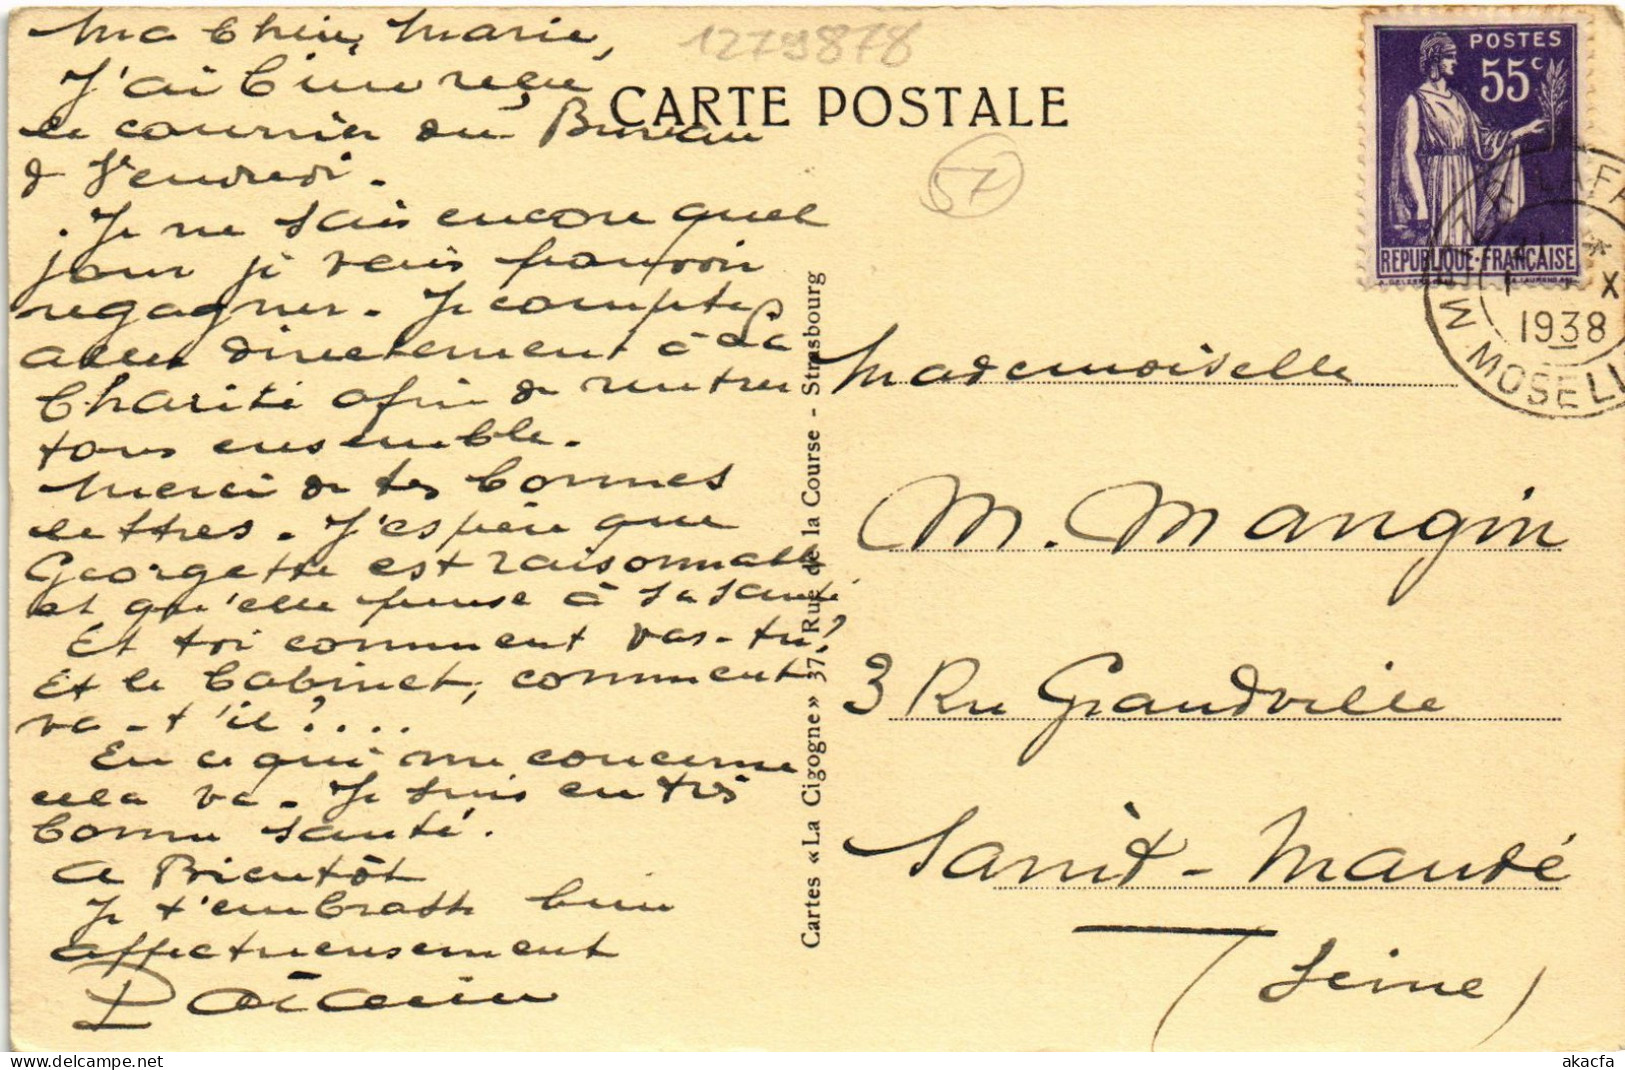 Ma Chère Marie,
J'ai bien reçu
le courrier du Bureau
d Vendredi.
. Je ne sais encore quel
jour je vais pouvoir
regagner. Je compte
aller directement à La
Charité afin de rentrer
tous ensemble.
Merci de tes bonnes
lettres. J'espère que
Georgette est raisonnable
et qu'elle pense à sa santé
Et toi comment vas-tu?
Et le Cabinet, comment
va-t'il?....
En ce qui me concerne
cela va. Je suis en très
bonne santé.
A Bientôt
Je t'embrasse bien
affectueusement
1279878
CARTE POSTALE
57
Cartes «La Cigogne» 37, Rue de la Course - Strasbourg
POSTES
55c
REPUBLIQUE·FRANÇAISE
METZ LAFA
X
1938
MOSELL
Mademoiselle
M. Mangin
3 Rue Grandville
Saint-Mandé
(Seine)
akacfa